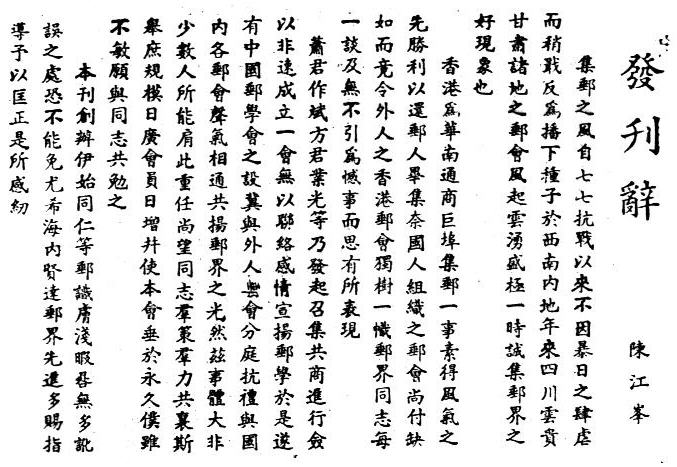 發刊辭
陳江峯
集郵之風自七七抗戰以來不因暴日之肆虐
而稍戢反爲播下種子於西南内地年來四川雲貴
甘肅諸地之郵會風起雲湧盛極一時誠集郵界之
好現象也
香港爲華南通商巨埠集郵一事素得風氣之
先勝利以還郵人畢集奈國人組織之郵會尚付缺
如而竟令外人之香港郵會獨樹一幟郵界同志每
一談及無不引爲憾事而思有所表現
蕭君作斌方君業光等乃發起召集共商進行僉
以非速成立一會無以聯絡感情宣揚郵學於是遂
有中國郵學會之設冀與外人郵會分庭抗禮與國
内各郵會聲氣相通共揚郵界之光然茲事體大非
少數人所能肩此重任尚望同志羣策羣力共襄斯
舉庶規模日廣會員日增幷使本會垂於永久僕雖
不敏願與同志共勉之
本刊創辦伊始同仁等郵識膚淺暇晷無多訛
誤之處恐不能免尤希海内賢達郵界先進多賜指
導予以匡正是所感紉